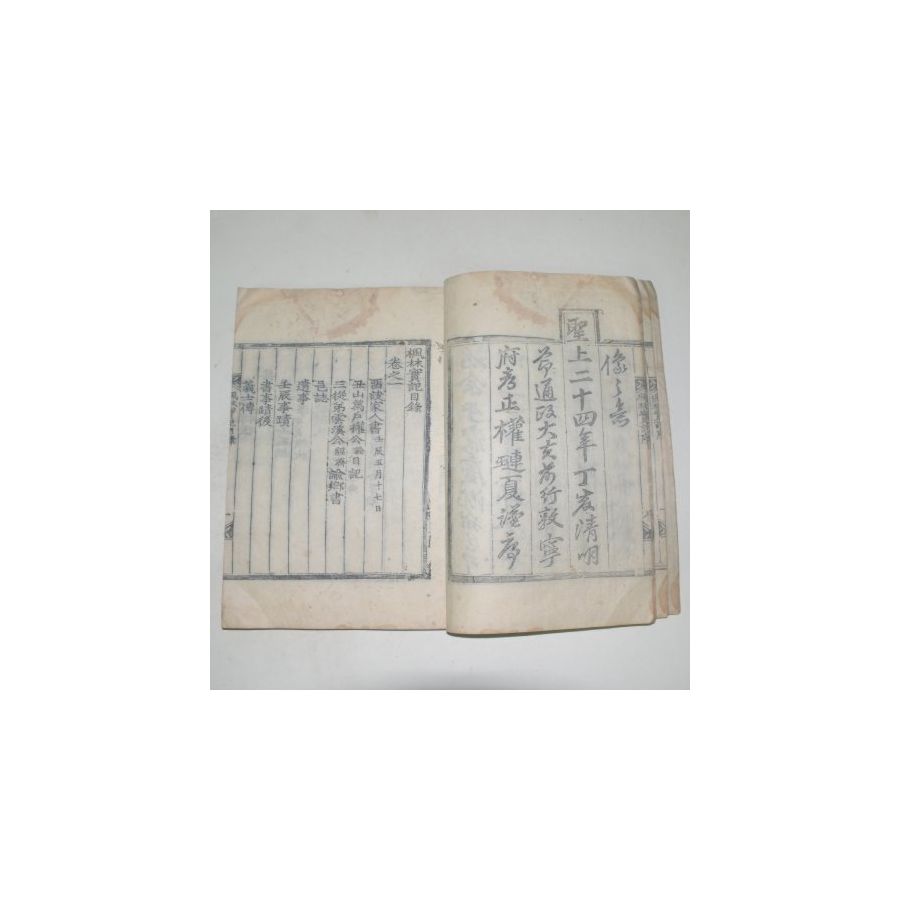 像之意
聖上二十四年丁亥清明
節通政大夫前行敦寧
府都正權璉夏謹序
楓林實記目錄
卷之一
酉諼家人書 壬辰五月十七日
丑山萬戶權公日記
三從弟雲溪公諭鄉書
邑誌
遺事
壬辰事蹟
書事蹟後
義士傳